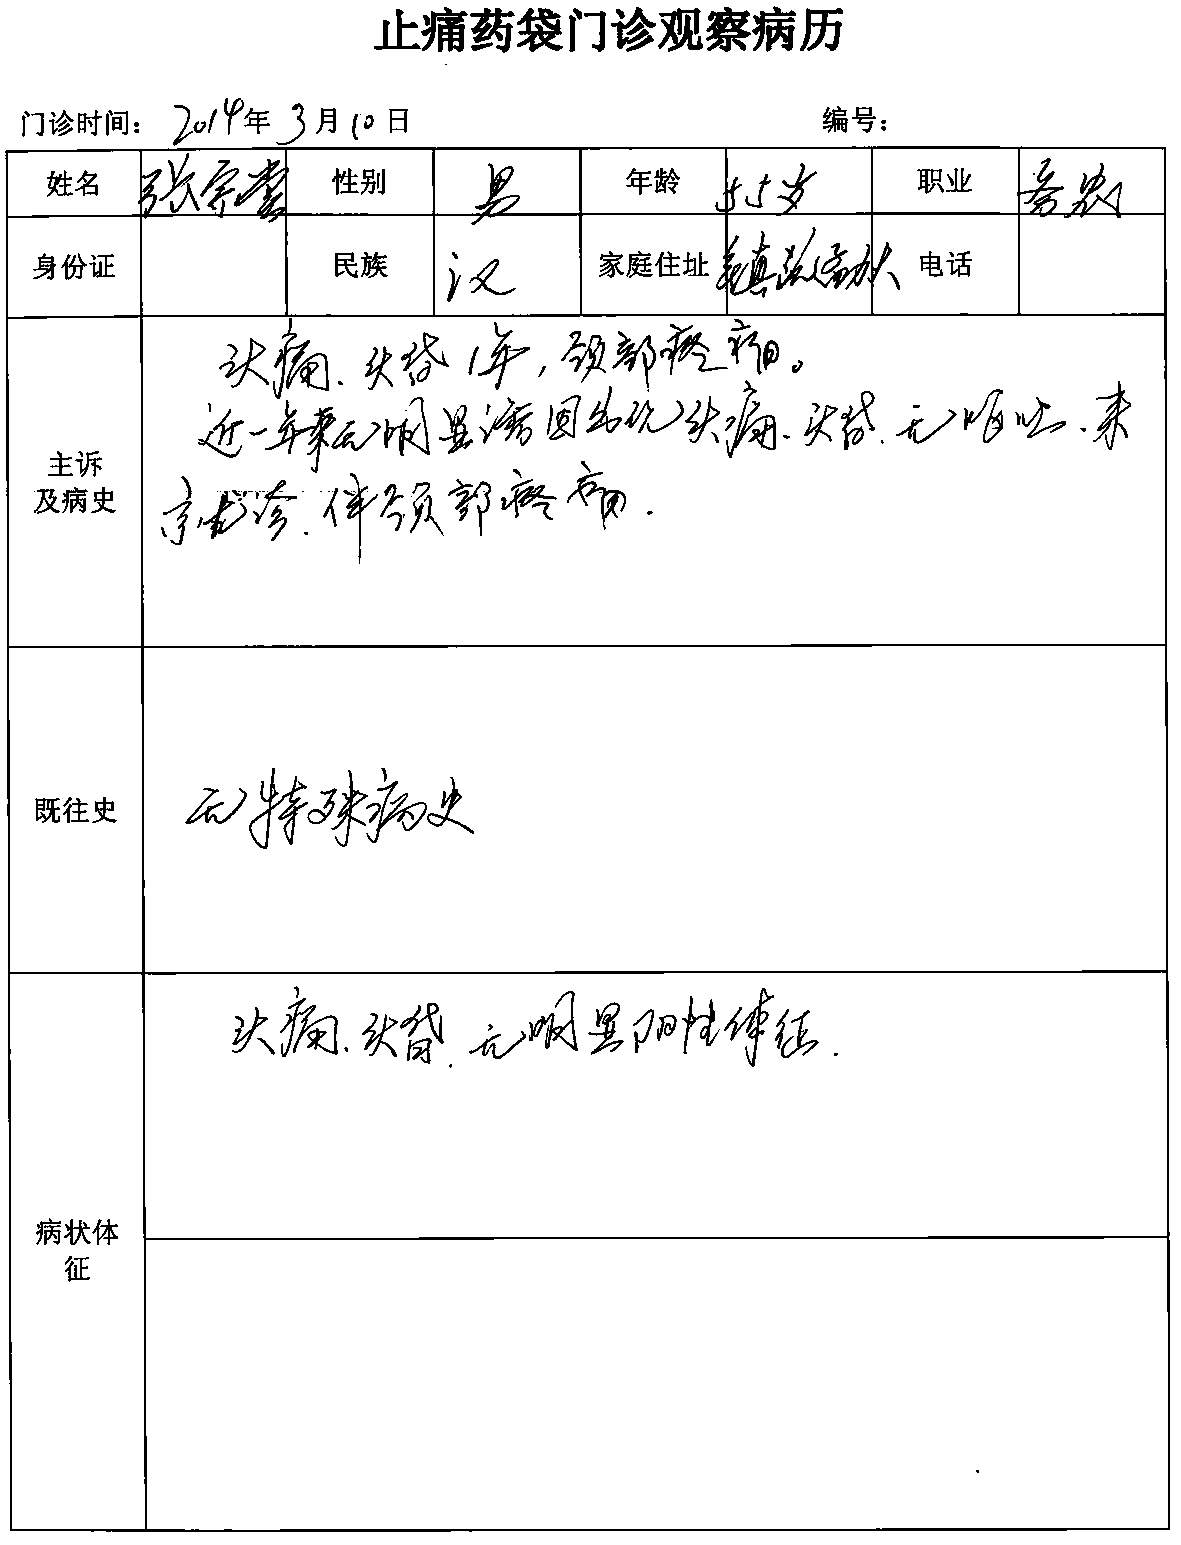 止痛药袋门诊观察病历
门诊时间： 2014年 3月 10日 编号：
姓名 张宗 性别 男 年龄 55岁 职业 务农
身份证 民族 汉 家庭住址 镇 电话
主诉
及病史
头痛、头昏1年，颈部疼痛。
近一年来无明显诱因出现头痛、头昏、无呕吐、来
京就诊、伴颈部疼痛.
既往史 无特殊病史
头痛、头昏、无明显阳性体征.
病状体
征